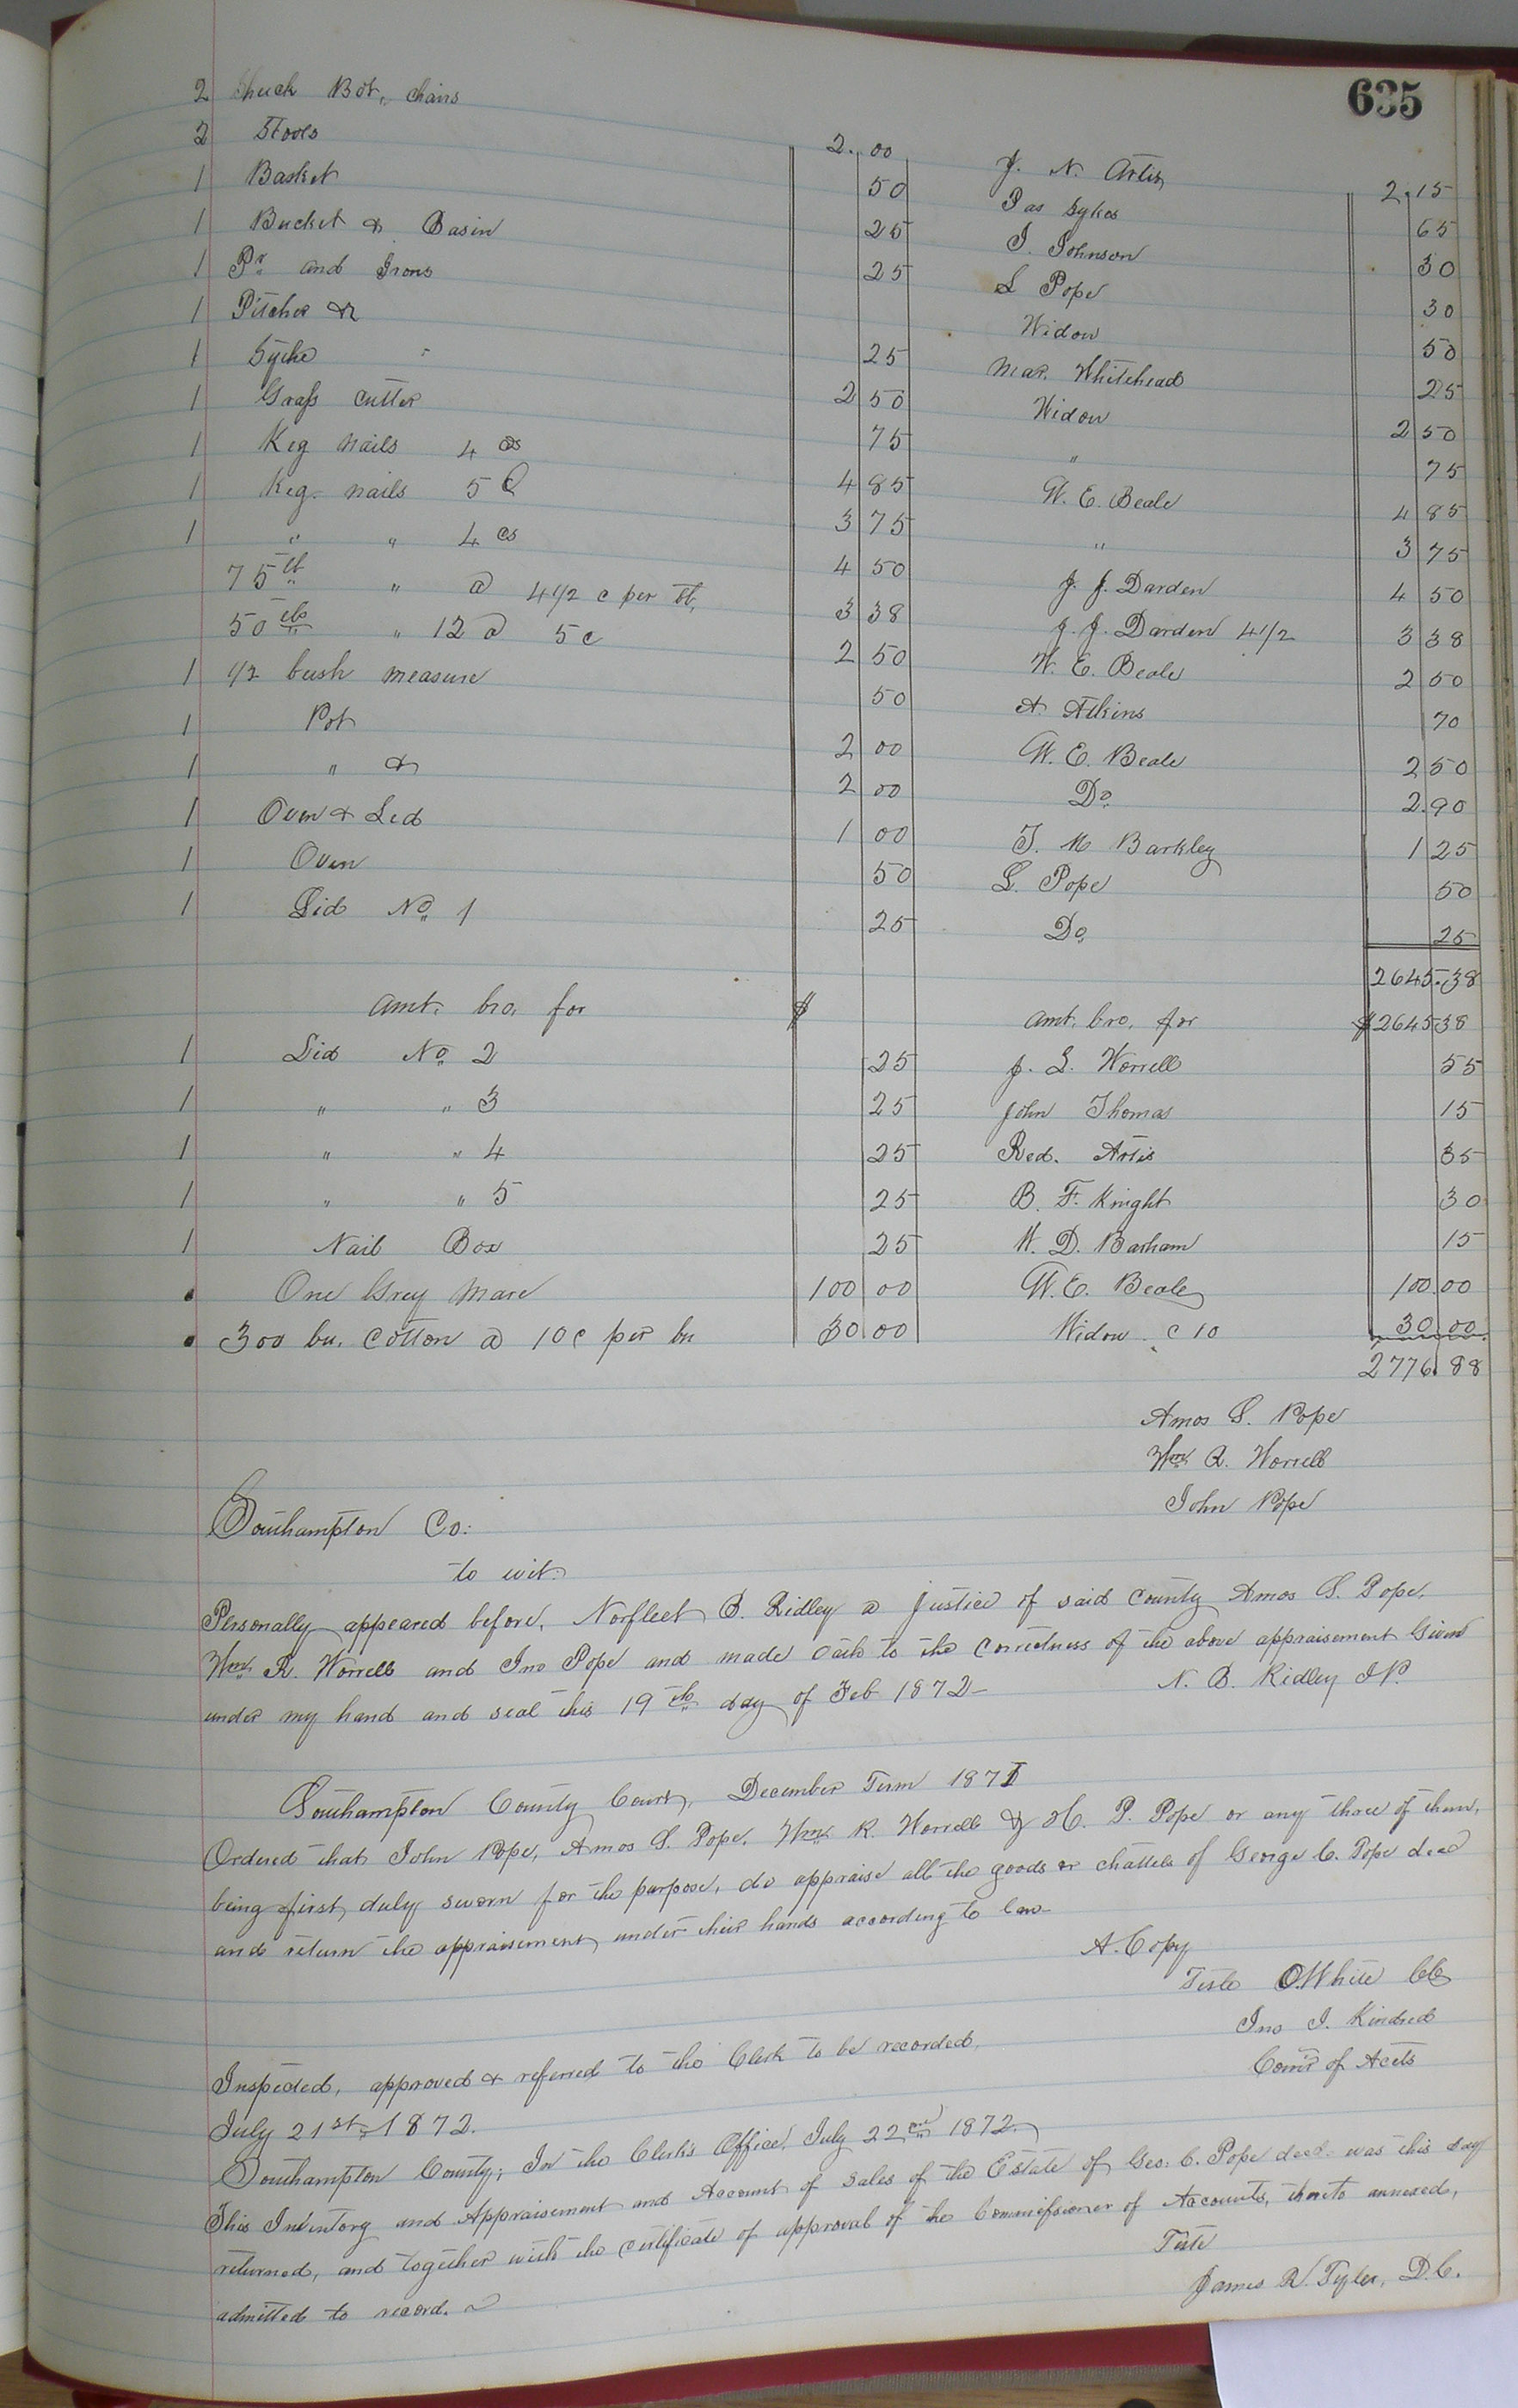 635
2 Shuck Bot. chairs 2.00 J. N. Artis 2.15
2 Stools 50 Jas Sykes 65
1 Basket 25 J. Johnson 30
1 Bucket & Basin 25 L Pope 30
1 Pr and Irons Widow 50
1 Pitcher & 25 Mar. Whitehead 25
1 Syche 2 50 Widow 2 50
1 Grass Cutter 75 " 75
1 Keg Nails 4 ds 4 85 W. E. Beale 4 85
1 Keg nails 5 3 75 " 3 75
1 " " 4 4 50 J. J. Darden 4 50
75 lb " @ 4 1/2 c per lb, 3 38 J. J. Darden 4 1/2 3 38
50 lbs " 12 @ 5 c 2 50 W. E. Beale 2 50
1 1/2 bush measure 50 A. Atkins 70
1 Pot 2 00 W. E. Beale 2 50
1 " & 2 00 Do 2.90
1 Oven & Lid 1 00 T. M Barkley 1 25
1 Oven 50 L. Pope 50
1 Lid No 1 25 Do 25
2645.38
Amt. bro. for $ Amt. bro. for $2645 38
1 Lid No 2 25 J. L. Worrell 55
1 " " 3 25 John Thomas 15
1 " " 4 25 Red. Artis 35
1 " " 5 25 B. F. Knight 30
1 Nail Box 25 W. D. Barham 15
One Grey Mare 100 00 W. E. Beale 100.00
300 bu. Cotton @ 10c per bu 30 00 Widow c 10 30.00
2776.88
Amos S. Pope
Wm R. Worrell
John Pope
Southampton Co:
to wit:
Personally appeared before, Norfleet B. Ridley a Justice of said County Amos S. Pope,
Wm R. Worrell and Jno Pope and made oath to the correctness of the above appraisement Given
under my hand and seal this 19th day of Feb 1872– N. B. Ridley J.P.
Southampton County Court, December Term 1871
Ordered that John Pope, Amos S. Pope, Wm R. Worrell & H. P. Pope or any three of them,
being first, duly sworn for the purpose, do appraise all the goods or chattels of George C. Pope decd
and return the appraisement, under their hands according to law–
A. Copy
Teste O. White CC
Jno J. Kindred
Com'r of Accts
Inspected, approved & referred to the Clerk to be recorded,
July 21st 1872.
Southampton County; In the Clerk's Office, July 22nd 1872.
This Inventory and Appraisement and Account of Sales of the Estate of Geo: C. Pope decd– was this day
returned, and together with the certificate of approval of the Commissioner of Accounts, thereto annexed,
admitted to record.
Teste
James R. Tyler, D.C.